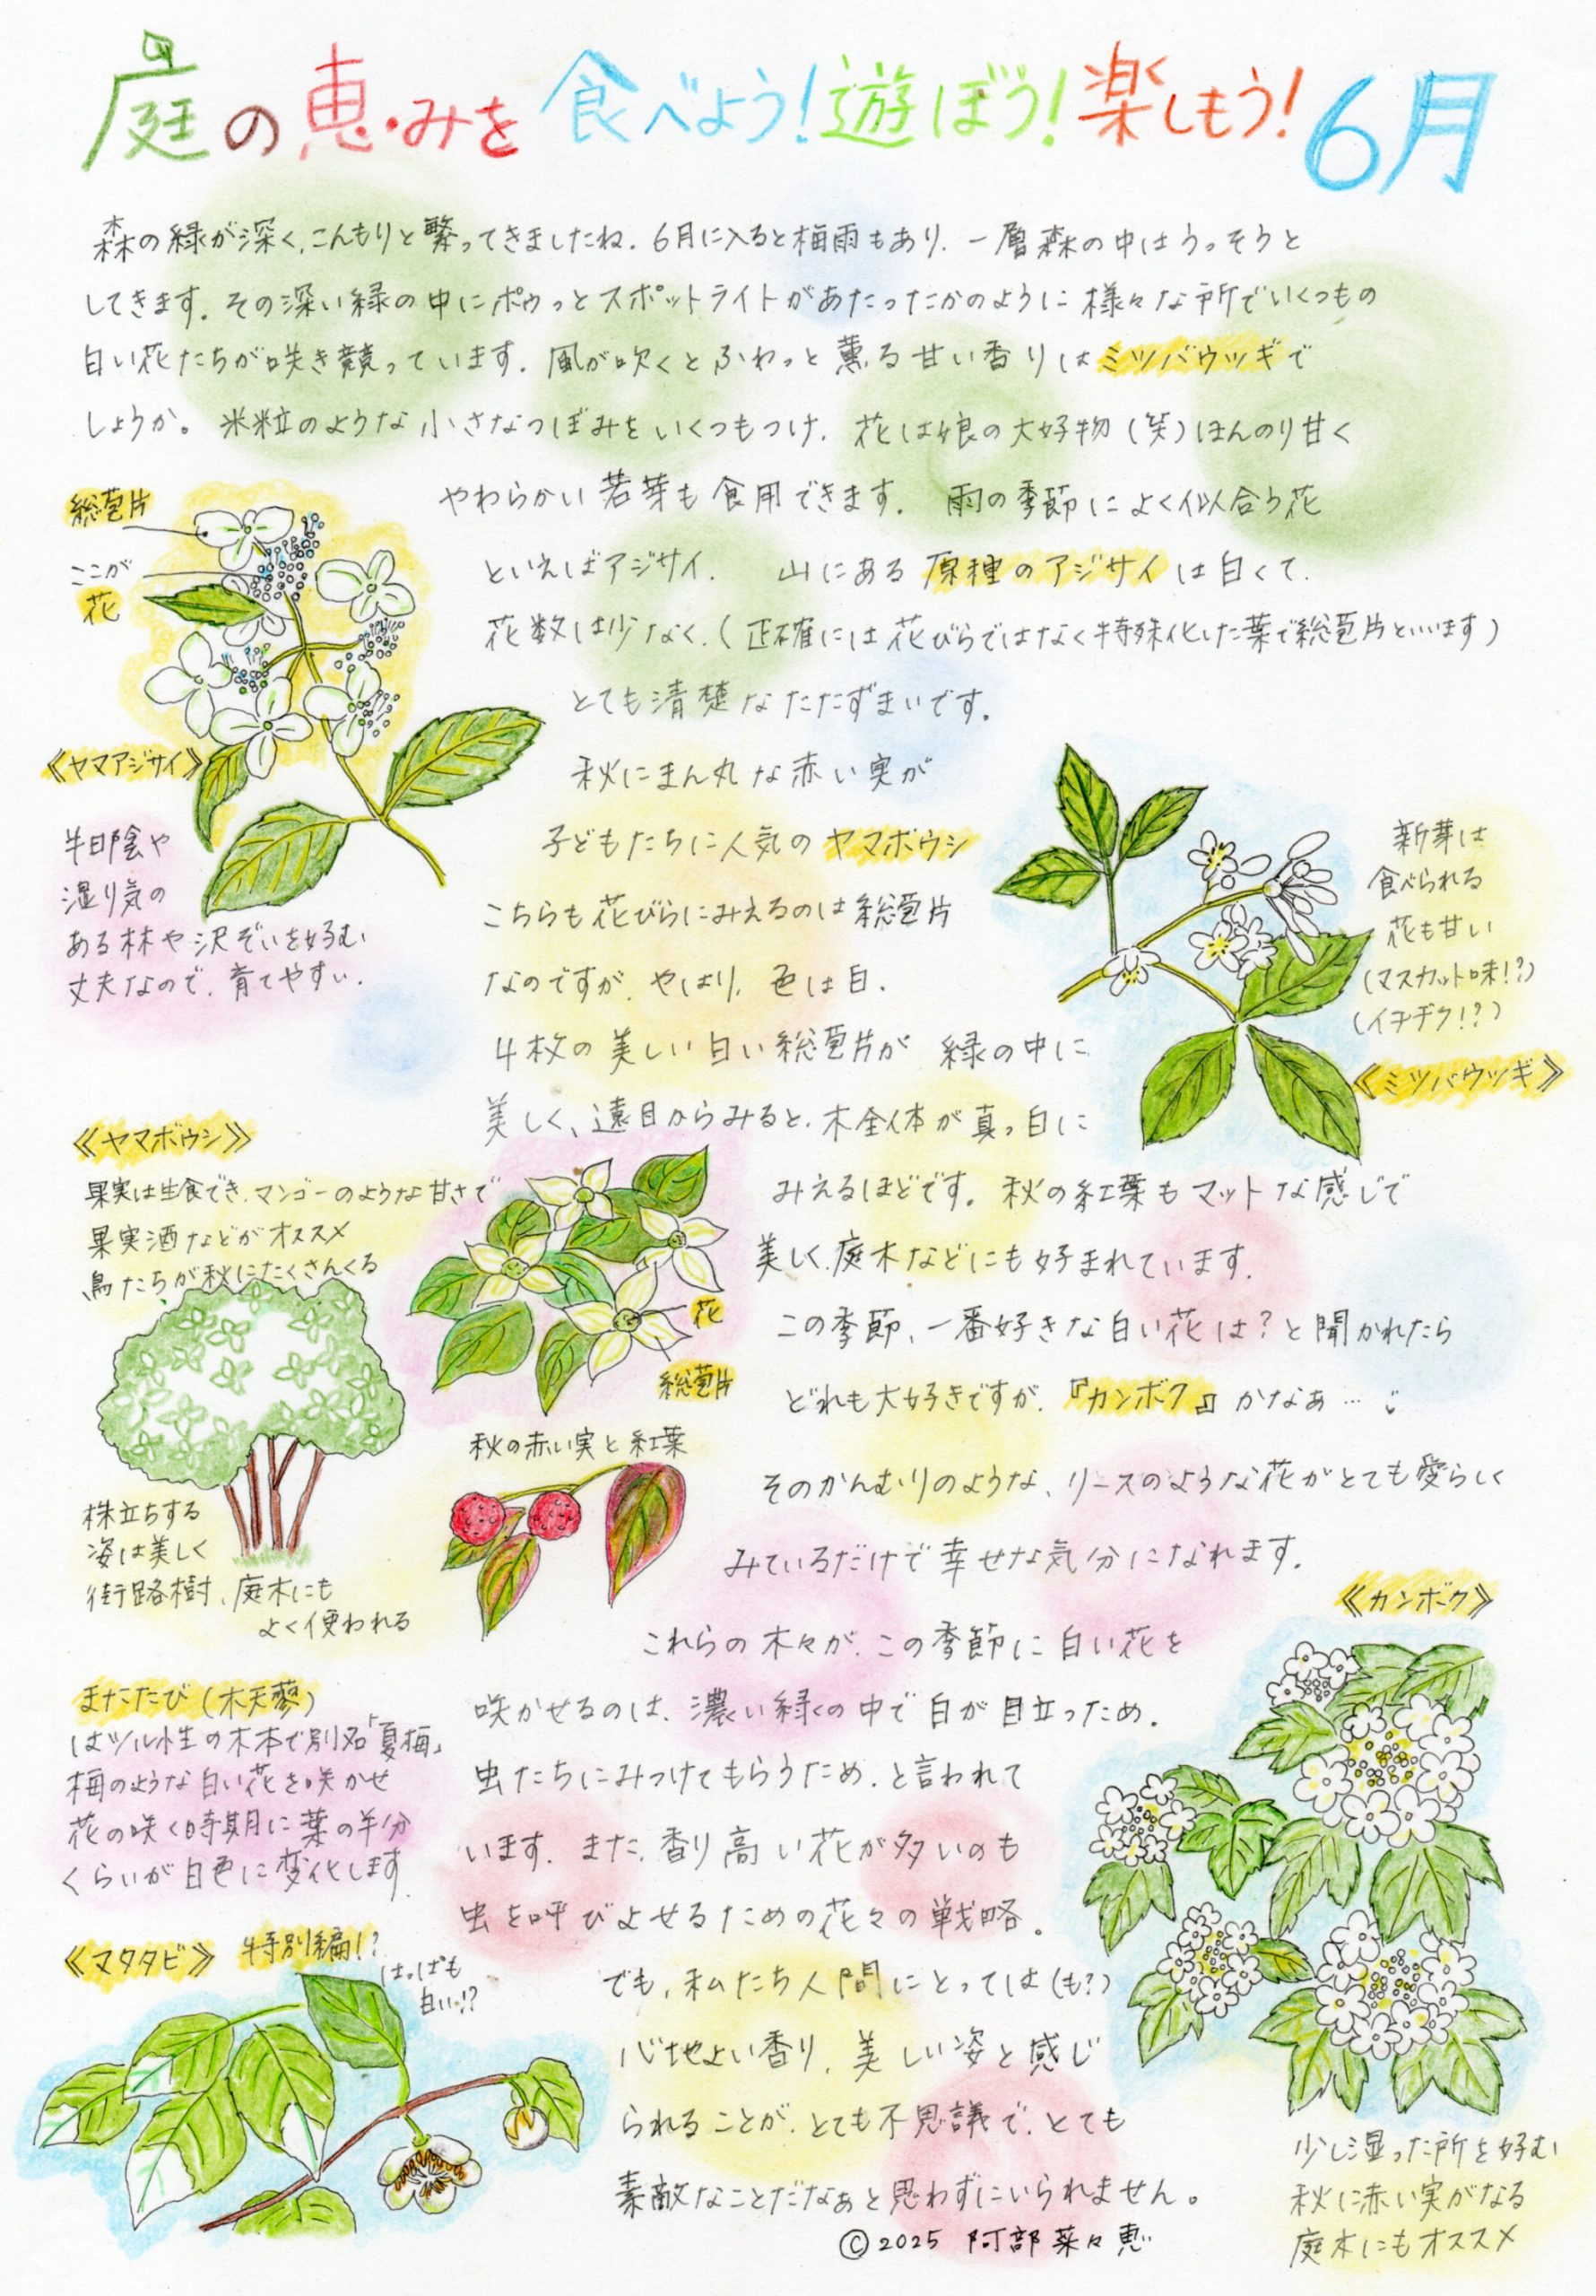 庭の恵みを食べよう!遊ぼう!楽しもう!6月
森の緑が深く、こんもりと繁ってきましたね。6月に入ると梅雨もあり、一層森の中はうっそうと
してきます。その深い緑の中にポゥっとスポットライトがあたったかのように様々な所でいくつもの
白い花たちが咲き競っています。風が吹くとふわっと薫る甘い香りはミツバウツギで
しょうか。米粒のような小さなつぼみをいくつもつけ、花は娘の大好物(笑)ほんのり甘く
やわらかい若芽も食用できます。雨の季節によく似合う花
といえばアジサイ。山にある原種のアジサイは白くて、
花数は少なく、(正確には花びらではなく特殊化した葉で総苞片といいます)
とても清楚なたたずまいです。
秋にまん丸な赤い実が
子どもたちに人気のヤマボウシ
こちらも花びらにみえるのは総苞片
なのですが、やはり、色は白、
4枚の美しい白い総苞片が緑の中に
美しく、遠目からみると、木全体が真っ白に
みえるほどです。秋の紅葉もマットな感じで
美しく、庭木などにも好まれています。
この季節、一番好きな白い花は?と聞かれたら
どれも大好きですが、『カンボク』かなぁ…
そのかんむりのような、リースのような花がとても愛らしく
みているだけで幸せな気分になれます。
これらの木々が、この季節に白い花を
咲かせるのは、濃い緑の中で白が目立つため、
虫たちにみつけてもらうため、と言われて
います。また、香り高い花が多いのも
虫を呼びよせるための花々の戦略。
でも、私たち人間にとっては(も?)
心地よい香り、美しい姿と感じ
られることが、とても不思議で、とても
素敵なことだなぁと思わずにいられません。
©2025 阿部菜々恵
総苞片
ここが
花
《ヤマアジサイ》
半日陰や
湿り気の
ある林や沢ぞいを好む
丈夫なので、育てやすい。
新芽は
食べられる
花も甘い
(マスカット味!?)
(イチヂク!?)
《ミツバウツギ》
《ヤマボウシ》
果実は生食でき、マンゴーのような甘さで
果実酒などがオススメ
鳥たちが秋にたくさんくる
花
総苞片
秋の赤い実と紅葉
株立ちする
姿は美しく
街路樹、庭木にも
よく使われる
《カンボク》
少し湿った所を好む
秋に赤い実がなる
庭木にもオススメ
またたび(木天蓼)
はツル性の木本で別名「夏梅」
梅のような白い花を咲かせ
花の咲く時期に葉の半分
くらいが白色に変化します。
《マタタビ》特別編!?
はっぱも
白い!?